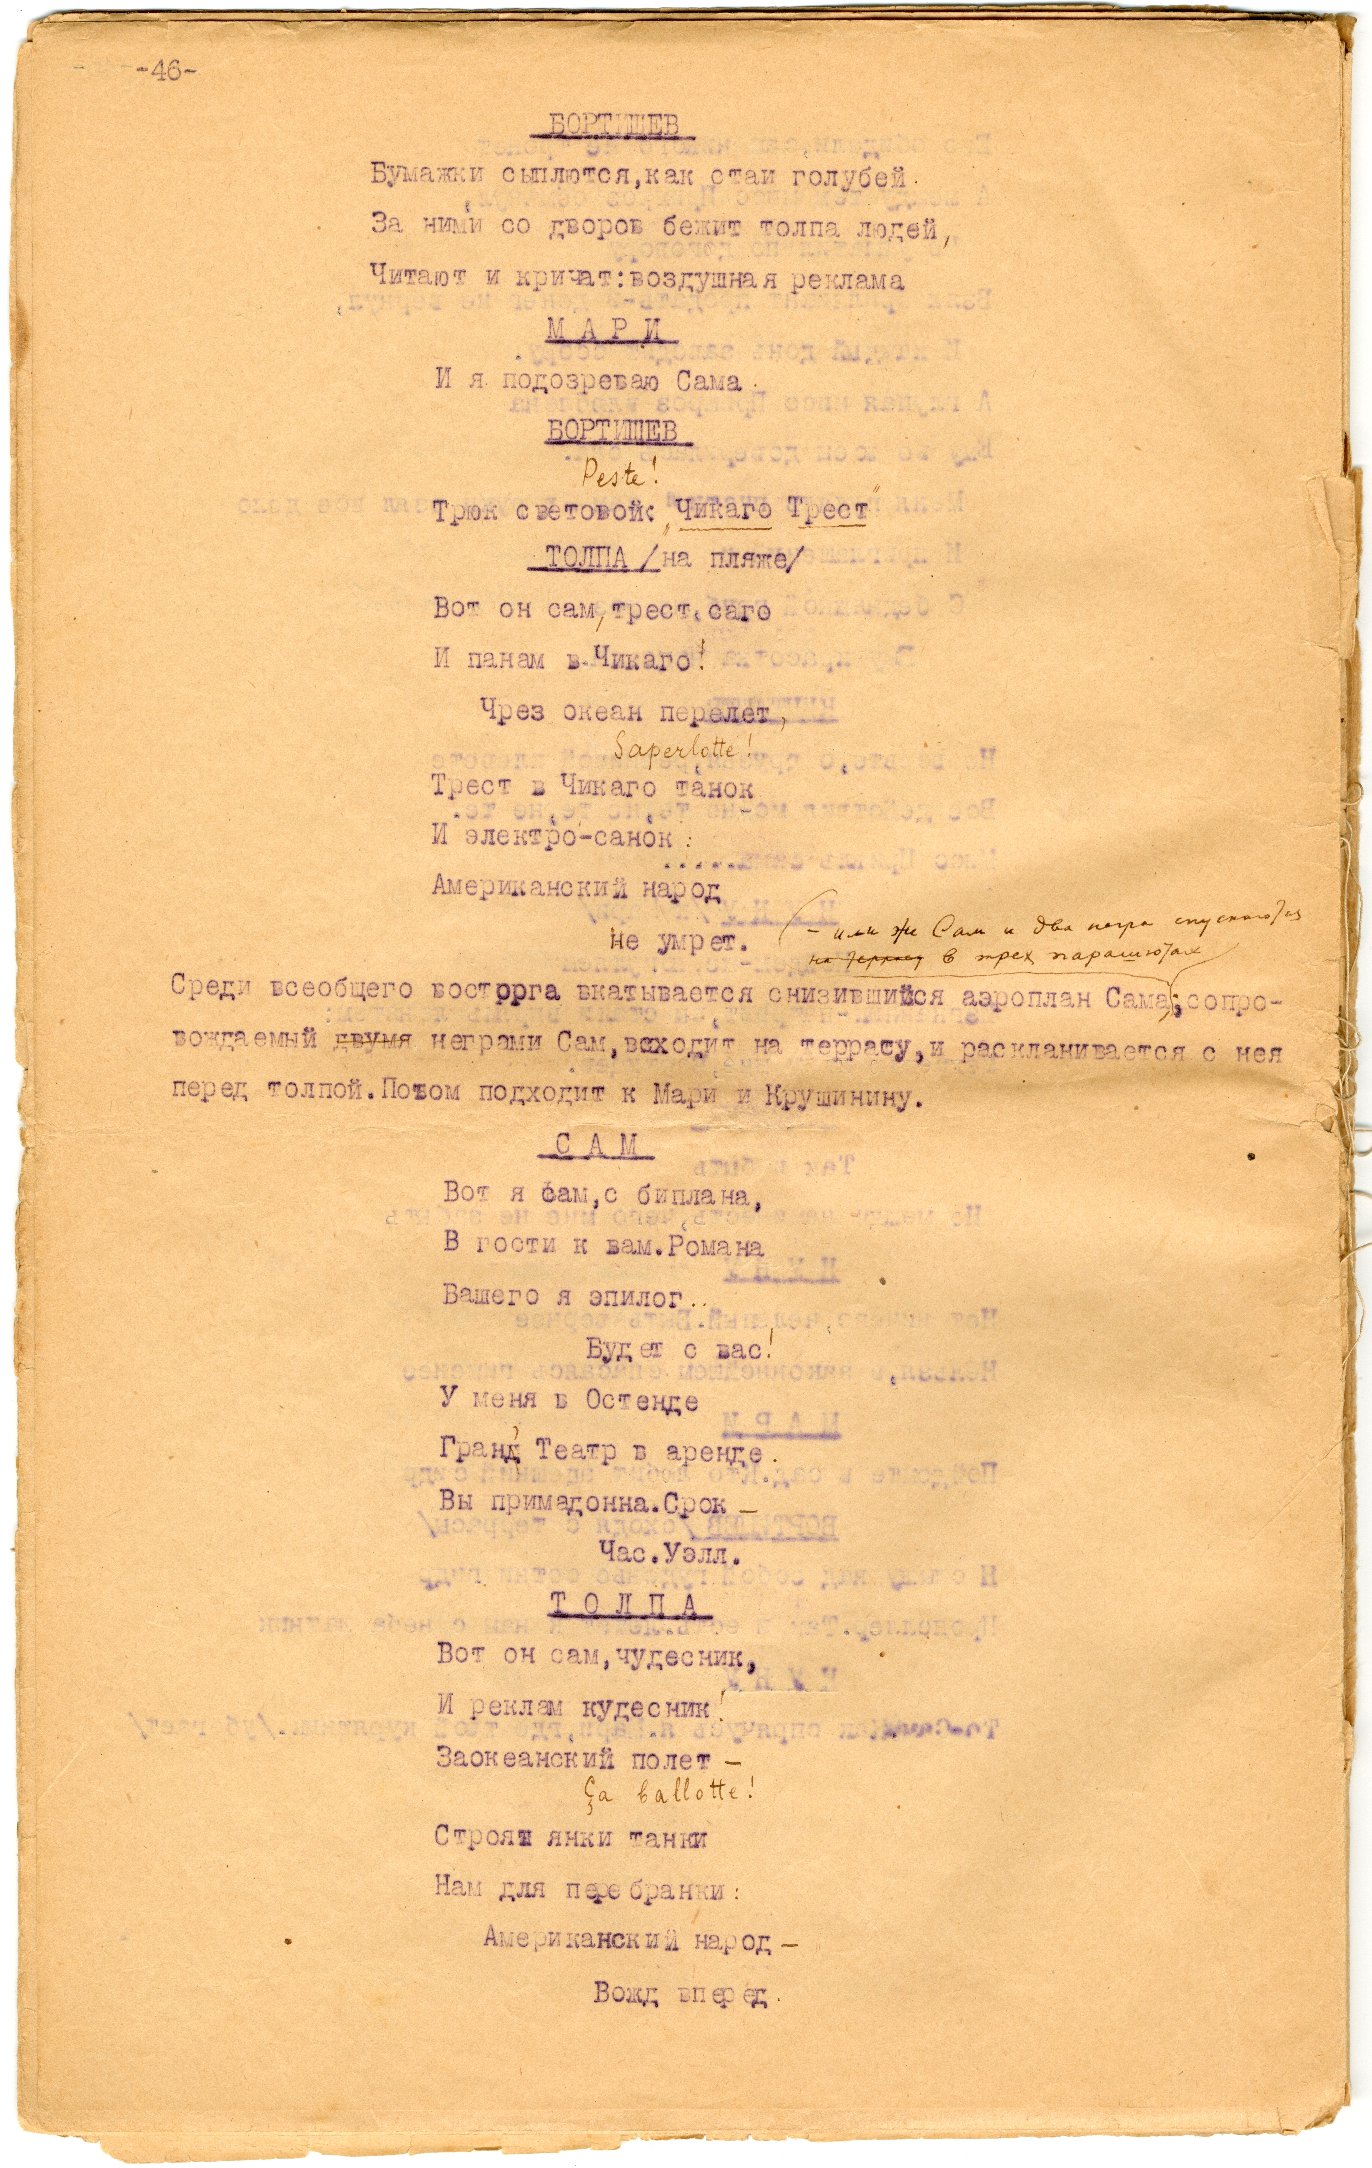 -46-
БОРТИШЕВ
Бумажки сыплются,как стаи голубей.
За ними со дворов бежит толпа людей,
Читают и кричат:воздушная реклама
М А Р И
И я подозреваю Сама.
БОРТИШЕВ
Peste!
Трюк световой: „Чикаго Трест"
ТОЛПА /на пляже/
Вот он сам,трест,саго
И панам в Чикаго!
Чрез океан перелет,
Saperlotte!
Трест в Чикаго танок
И электро-санок:
Американский народ
не умрет.
- или же Сам и два негра спускаются
на террасу в трех парашютах
Среди всеобщего восторга вкатывается снизившийся аэроплан Сама;сопро-
вождаемый двумя неграми Сам,всходит на террасу,и раскланивается с нея
перед толпой.Потом подходит к Мари и Крушинину.
С А М
Вот я сам,с биплана,
В гости к вам.Романа
Вашего я эпилог..
Будет с вас!
У меня в Остенде
Гранд Театр в аренде.
Вы примадонна.Срок –
Час.Уэлл.
Т О Л П А
Вот он сам,чудесник,
И реклам кудесник!
Заокеанский полет –
Ça ballotte!
Строят янки танки
Нам для перебранки:
Американский народ –
Вожд вперед.